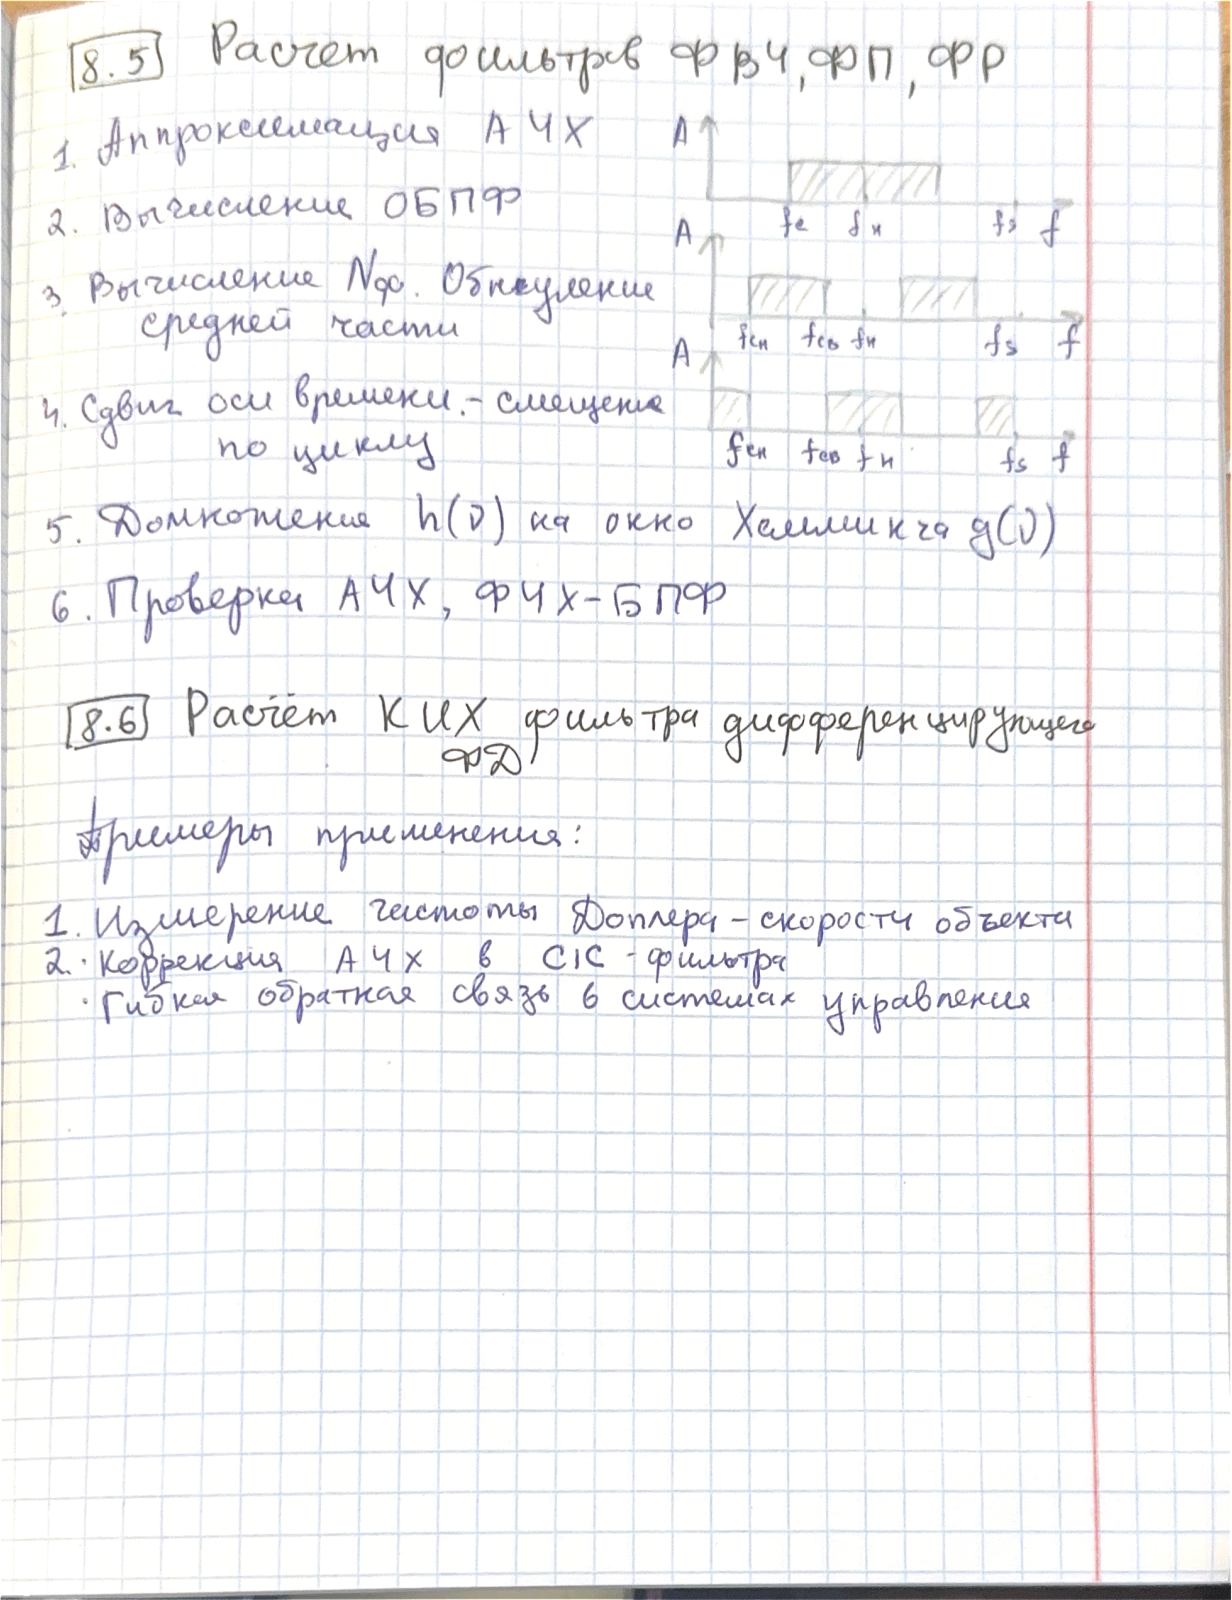 8.5 Расчет фильтров ФВЧ, ФП, ФР
1. Аппроксимация АЧХ
A
fc fн fs f
2. Вычисление ОБПФ
A
3. Вычисление Nф. Обнуление
средней части
fсн fсв fн fs f
A
4. Сдвиг оси времени. - смещение
по циклу
fсн fсв fн fs f
5. Домножения h(ν) на окно Хемминга g(ν)
6. Проверка АЧХ, ФЧХ - БПФ
8.6 Расчёт КИХ фильтра дифференцирующего
ФД
Примеры применения:
1. Измерение частоты Доплера - скорости объекта
2. · Коррекция АЧХ в CIC - фильтра
· Гибкая обратная связь в системах управления